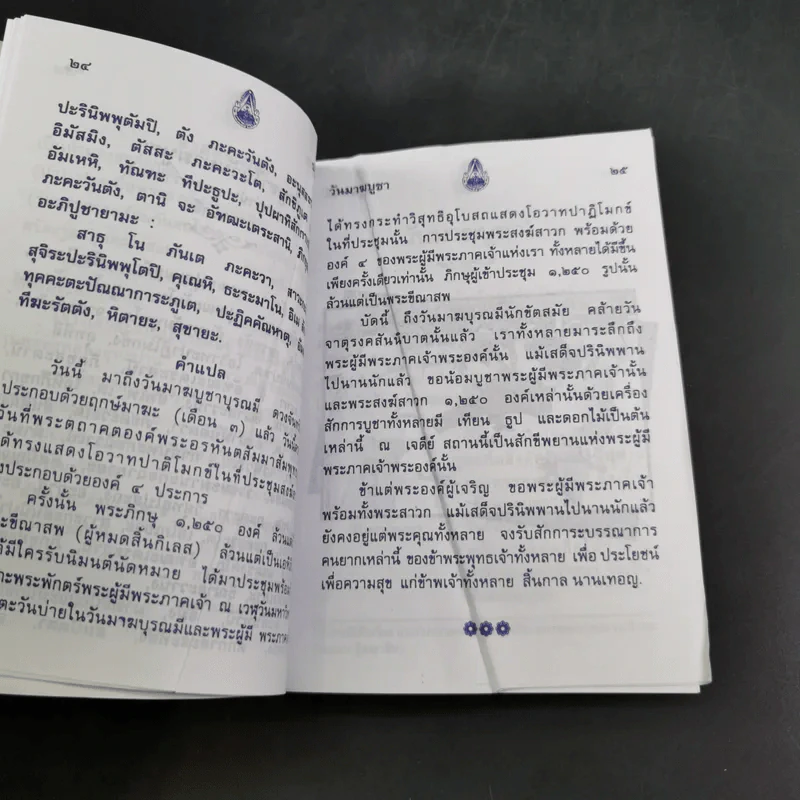 ๒๔
ปะรินิพพุตัมปิ, ตัง ภะคะวันตัง,
อิมัสมิง, ตัสสะ ภะคะวะโต, สักขีภูเต
อัมเหหิ, ทัณฑะ ทีปะธูปะ,
ภะคะวันตัง, ตานิ จะ อัฑฒะเตระสานิ,
อะภิปูชายามะ :
สาธุ โน ภันเต ภะคะวา,
สุจิระปะรินิพพุโตปิ, คุเณหิ, ธะระมาโน,
ทุคคะตะปัณณาการะภูเต, ปะฏิคคัณหาตุ,
ทีฆะรัตตัง, หิตายะ, สุขายะ.
คำแปล
วันนี้ มาถึงวันมาฆบูชาบุรณมี
ประกอบด้วยฤกษ์มาฆะ (เดือน ๓) แล้ว
วันที่พระตถาคตองค์พระอรหันตสัมมาสัมพุทธ
ทรงแสดงโอวาทปาติโมกข์ในที่ประชุม
ประกอบด้วยองค์ ๔ ประการ
ครั้งนั้น พระภิกษุ ๑,๒๕๐ องค์
(ผู้หมดสิ้นกิเลส) ล้วนแต่เป็น
มีใครรับนิมนต์นัดหมาย ได้มาประชุม
พระพักตร์พระผู้มีพระภาคเจ้า ณ
ตะวันบ่ายในวันมาฆบุรณมีและพระผู้มี
วันมาฆบูชา
๒๕
ได้ทรงกระทำวิสุทธิอุโบสถแสดงโอวาทปาฏิโมกข์
ในที่ประชุมนั้น การประชุมพระสงฆ์สาวก พร้อมด้วย
องค์ ๔ ของพระผู้มีพระภาคเจ้าแห่งเรา ทั้งหลายได้มีขึ้น
เพียงครั้งเดียวเท่านั้น ภิกษุผู้เข้าประชุม ๑,๒๕๐ รูปนั้น
ล้วนแต่เป็นพระขีณาสพ
บัดนี้ ถึงวันมาฆบุรณมีนักขัตสมัย คล้ายวัน
จาตุรงคสันนิบาตนั้นแล้ว เราทั้งหลายมาระลึกถึง
พระผู้มีพระภาคเจ้าพระองค์นั้น แม้เสด็จปรินิพพาน
ไปนานนักแล้ว ขอน้อมบูชาพระผู้มีพระภาคเจ้านั้น
และพระสงฆ์สาวก ๑,๒๕๐ องค์เหล่านั้นด้วยเครื่อง
สักการบูชาทั้งหลายมี เทียน ธูป และดอกไม้เป็นต้น
เหล่านี้ ณ เจดีย์ สถานนี้เป็นสักขีพยานแห่งพระผู้มี
พระภาคเจ้าพระองค์นั้น
ข้าแต่พระองค์ผู้เจริญ ขอพระผู้มีพระภาคเจ้า
พร้อมทั้งพระสาวก แม้เสด็จปรินิพพานไปนานนักแล้ว
ยังคงอยู่แต่พระคุณทั้งหลาย จงรับสักการะบรรณาการ
คนยากเหล่านี้ ของข้าพระพุทธเจ้าทั้งหลาย เพื่อ ประโยชน์
เพื่อความสุข แก่ข้าพเจ้าทั้งหลาย สิ้นกาล นานเทอญ.